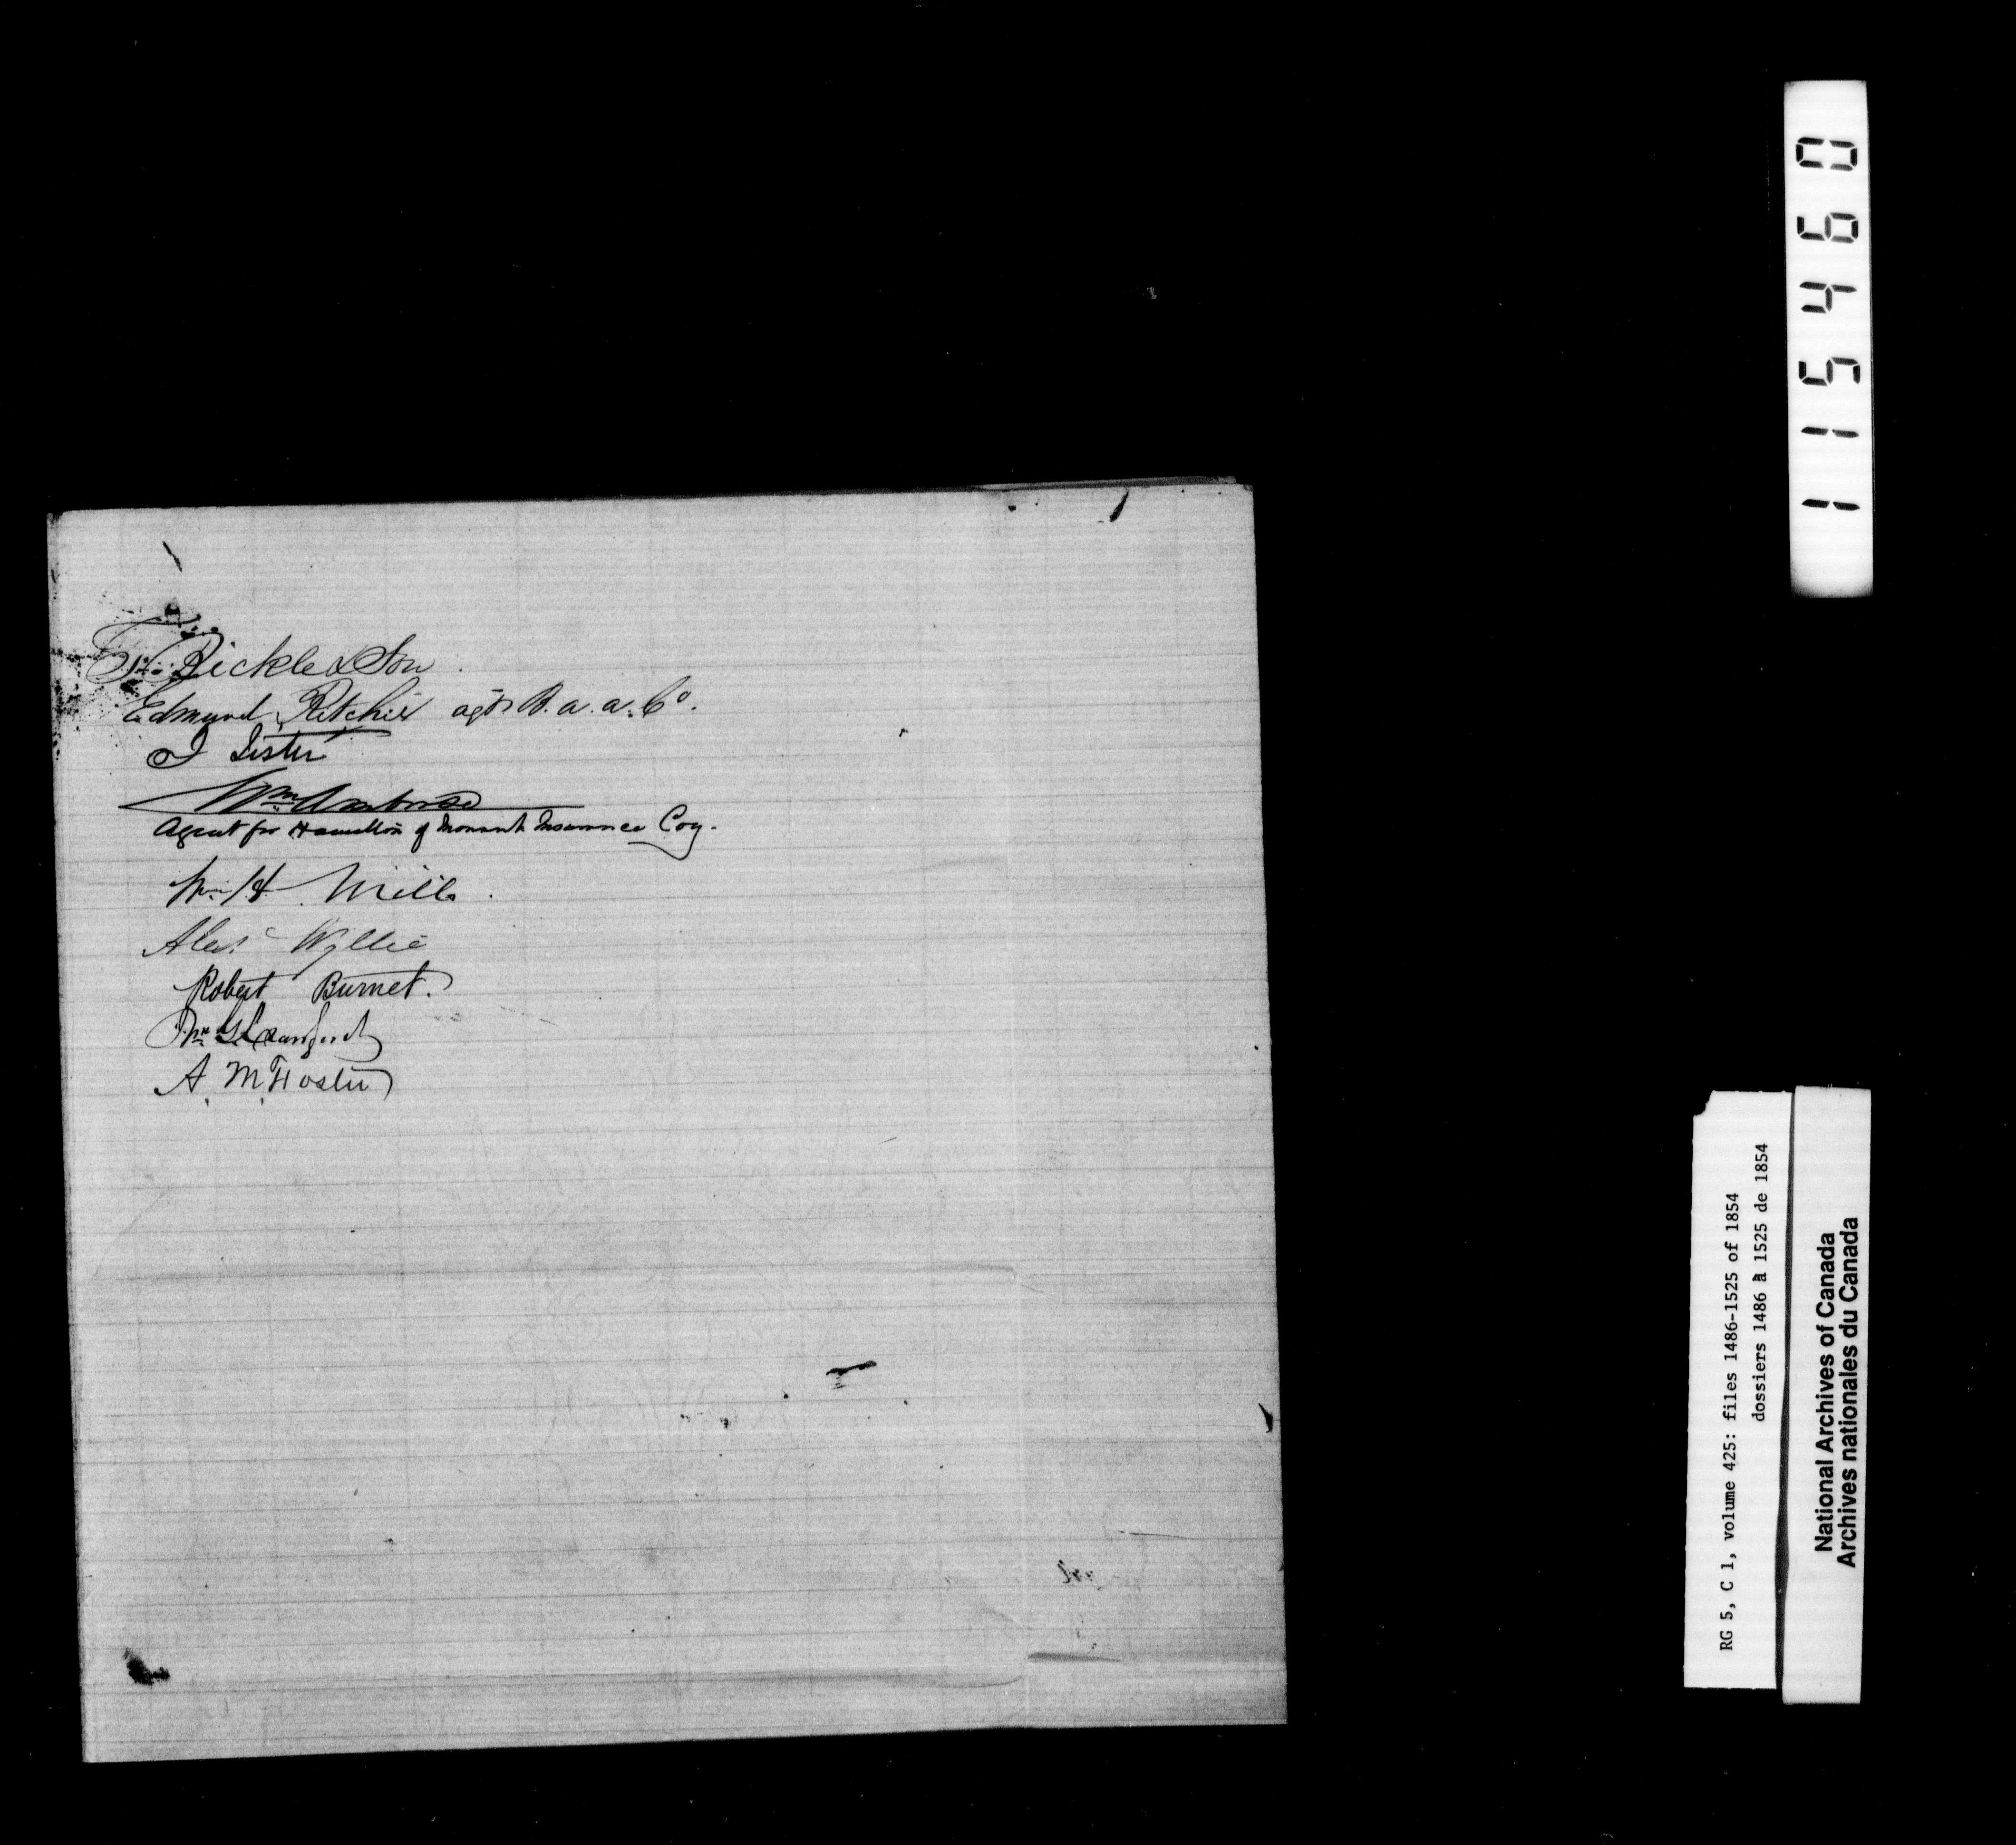 Bickle & Son
Edmund Ritchie agt B. A. A. Co.
J Lister
Wm Ambrose
Agent for Hamilton of Monarch Insurance Coy.
Wm H. Mills.
Alexr Wyllie
Robert Burnet.
Wm G Crawford
A. M. Foster
115460
RG 5, C 1, volume 425: files 1486-1525 of 1854
dossiers 1486 à 1525 de 1854
National Archives of Canada
Archives nationales du Canada